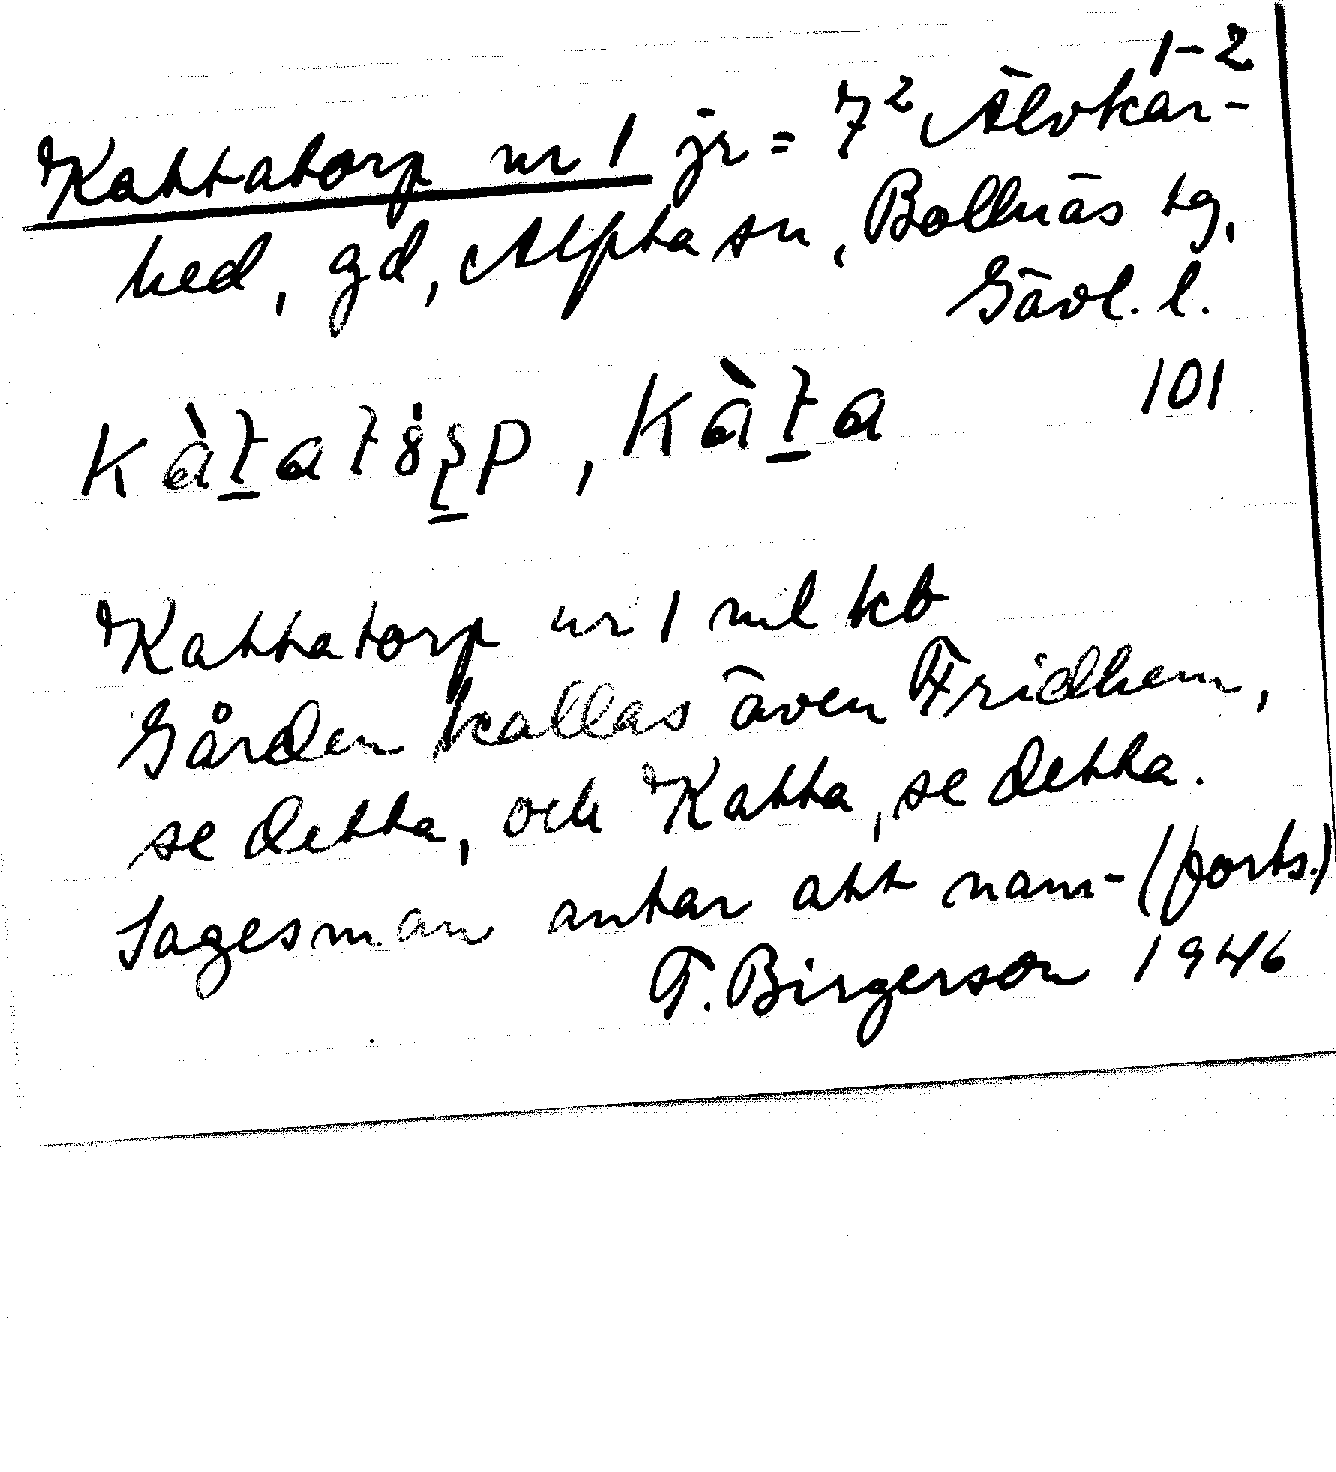 1-2
Kattatorp nr 1 jr = 7² Älvkar-
hed, gd, Alfta sn, Bollnäs tg,
Gävl. l.
101
Kattatorp nr 1 ml kb
Gården kallas även Fridhem,
se detta, och Katta, se detta.
Sagesman antar att nam- (forts.)
T. Birgerson 1946